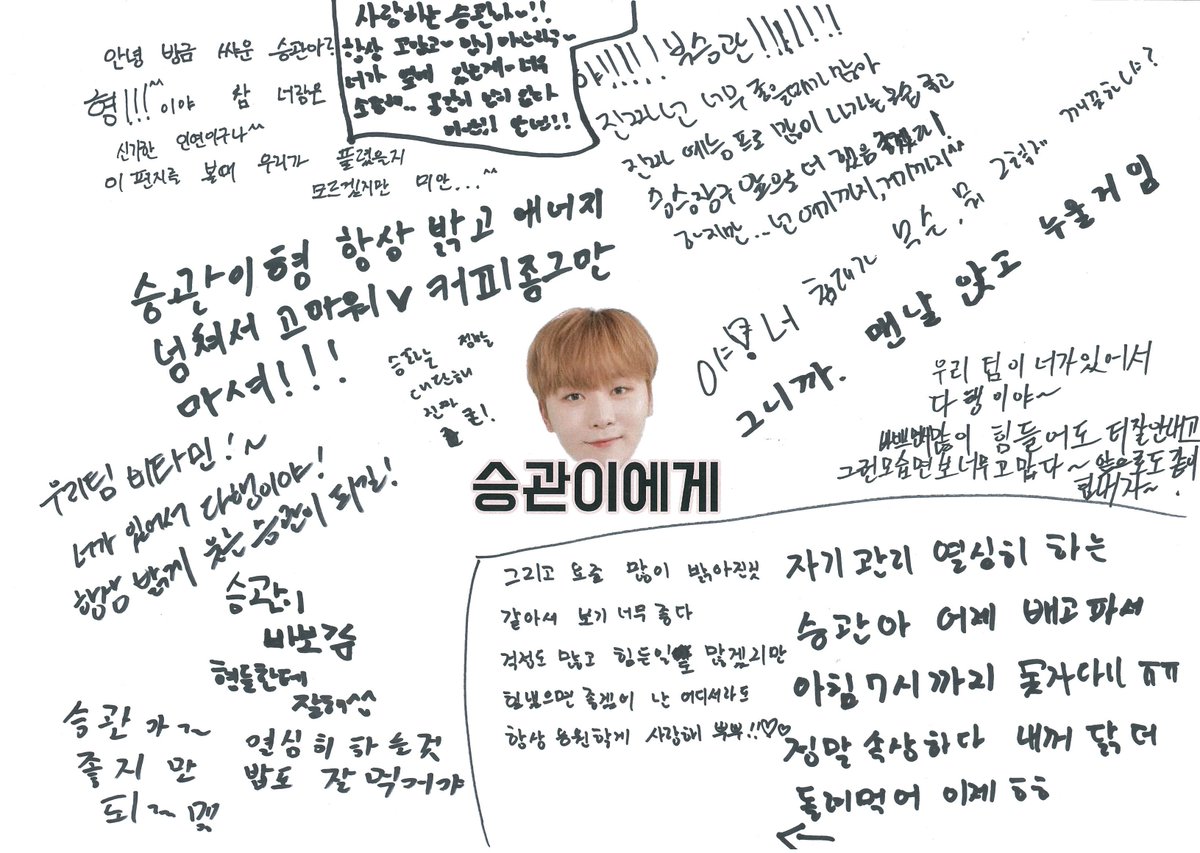 안녕 방금 싸운 승관아
형!!!^^ 이야 참 너랑은
신기한 인연이구나^^
이 편지를 볼때 우리가 풀렸을지
모르겠지만 미안...^^
사랑하는 승관아~!!
항상 고맙고~
너가 옆에 있는게~ 너무
소중해...
야!!!!! 부승관!!!!!!!
진짜 넌 너무 좋을때가 많아
진짜 예능 프로 많이 나가는 모습 좋고
승승장구
하지만... 넌 여기까지, 거기까지^^
승관이형 항상 밝고 에너지
넘쳐서 고마워 커피좀그만
마셔!!!
승관는 정말
대단해
진짜
굳!
야! 너 침대가 무슨. 뭐 그렇게 깨끗하냐?
그니까. 맨날 앉고 누울게임
우리 팀이 너가있어서
다행이야~
많이 힘들어도 티잘안내고
그런모습면보너무고맙다~ 앞으로도 좀더
힘내자~!
우리팀 비타민!~
너가 있어서 다행이야!
항상 밝게 웃는 승관이 되길!
승관이
바보
형들한테
잘해
열심히 하는것
밥도 잘 먹거라
승관아~
좋지만
승관이에게
자기관리 열심히 하는
승관아 어제 배고파서
아침7시까지 못자다니 ㅠㅠ
정말 속상하다 내꺼 닭 더
돌이먹어 이제 ㅎㅎ
←
그리고 요즘 많이 밝아진것
같아서 보기 너무 좋다
걱정도 많고 힘든일도 많겠지만
힘냈으면 좋겠어 난 어디서라도
항상 응원할게 사랑해 뿌뿌!!♡♡